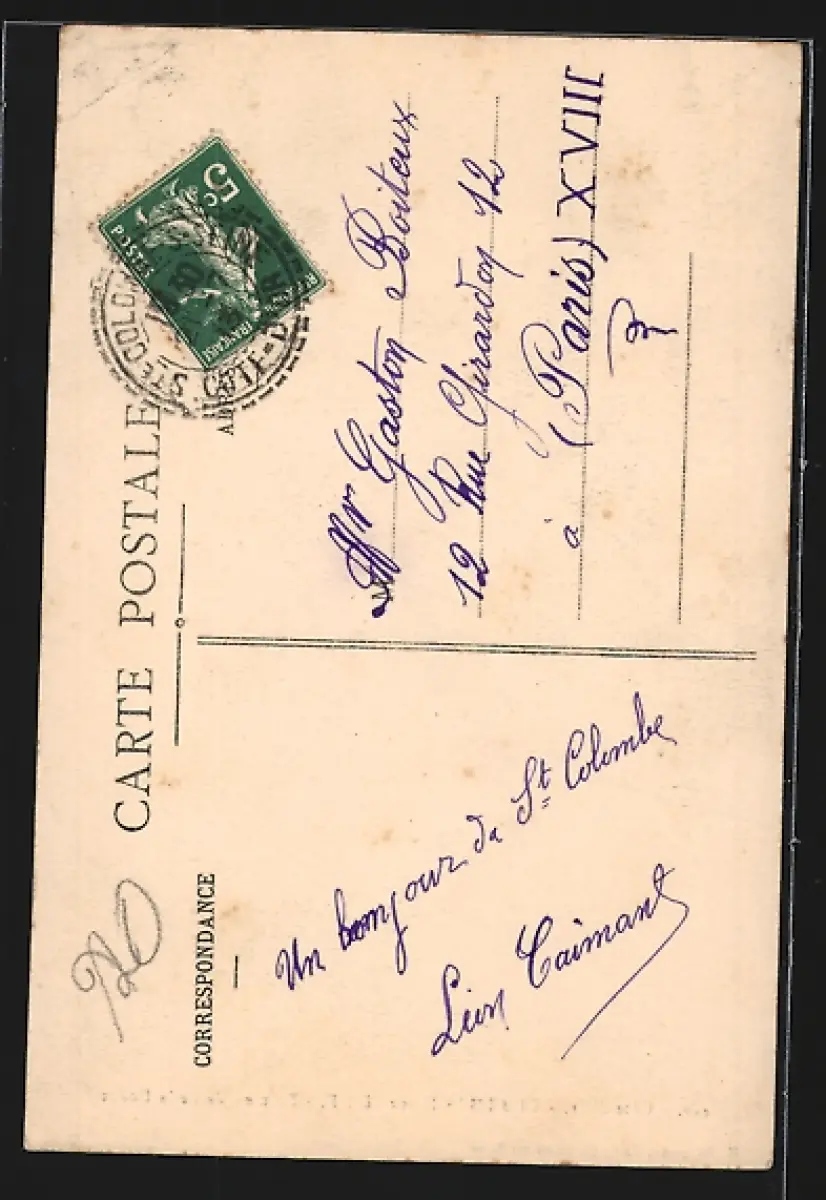 CARTE POSTALE
CORRESPONDANCE
Un bonjour de St Colombe
Léon Caimant
5c
POSTES
FRANÇAISE
STE COLO
CÔTE-D'OR
Mr Gaston Boiteux
12 Rue Girardon 12
à (Paris) XVIII